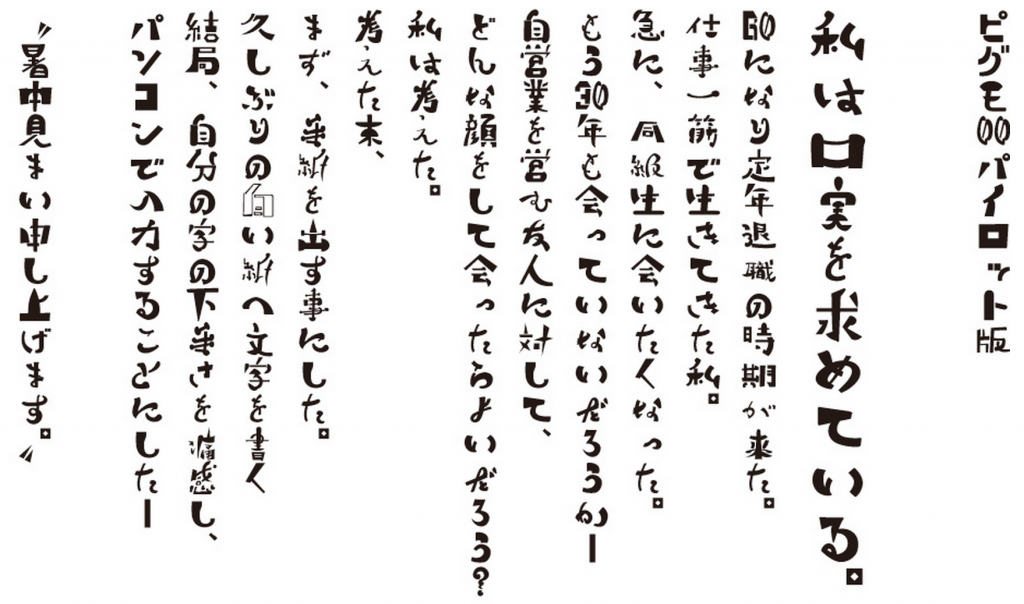 ピグモ00パイロット版
私は口実を求めている。
60になり定年退職の時期が来た。
仕事一筋で生きてきた私。
急に、同級生に会いたくなった。
もう30年も会っていないだろうかー
自営業を営む友人に対して、
どんな顔をして会ったらよいだろう?
私は考えた。
考えた末、
まず、手紙を出す事にした。
久しぶりの白い紙へ文字を書く
結局、自分の字の下手さを痛感し、
パソコンで入力することにしたー
〝暑中見まい申し上げます。〟